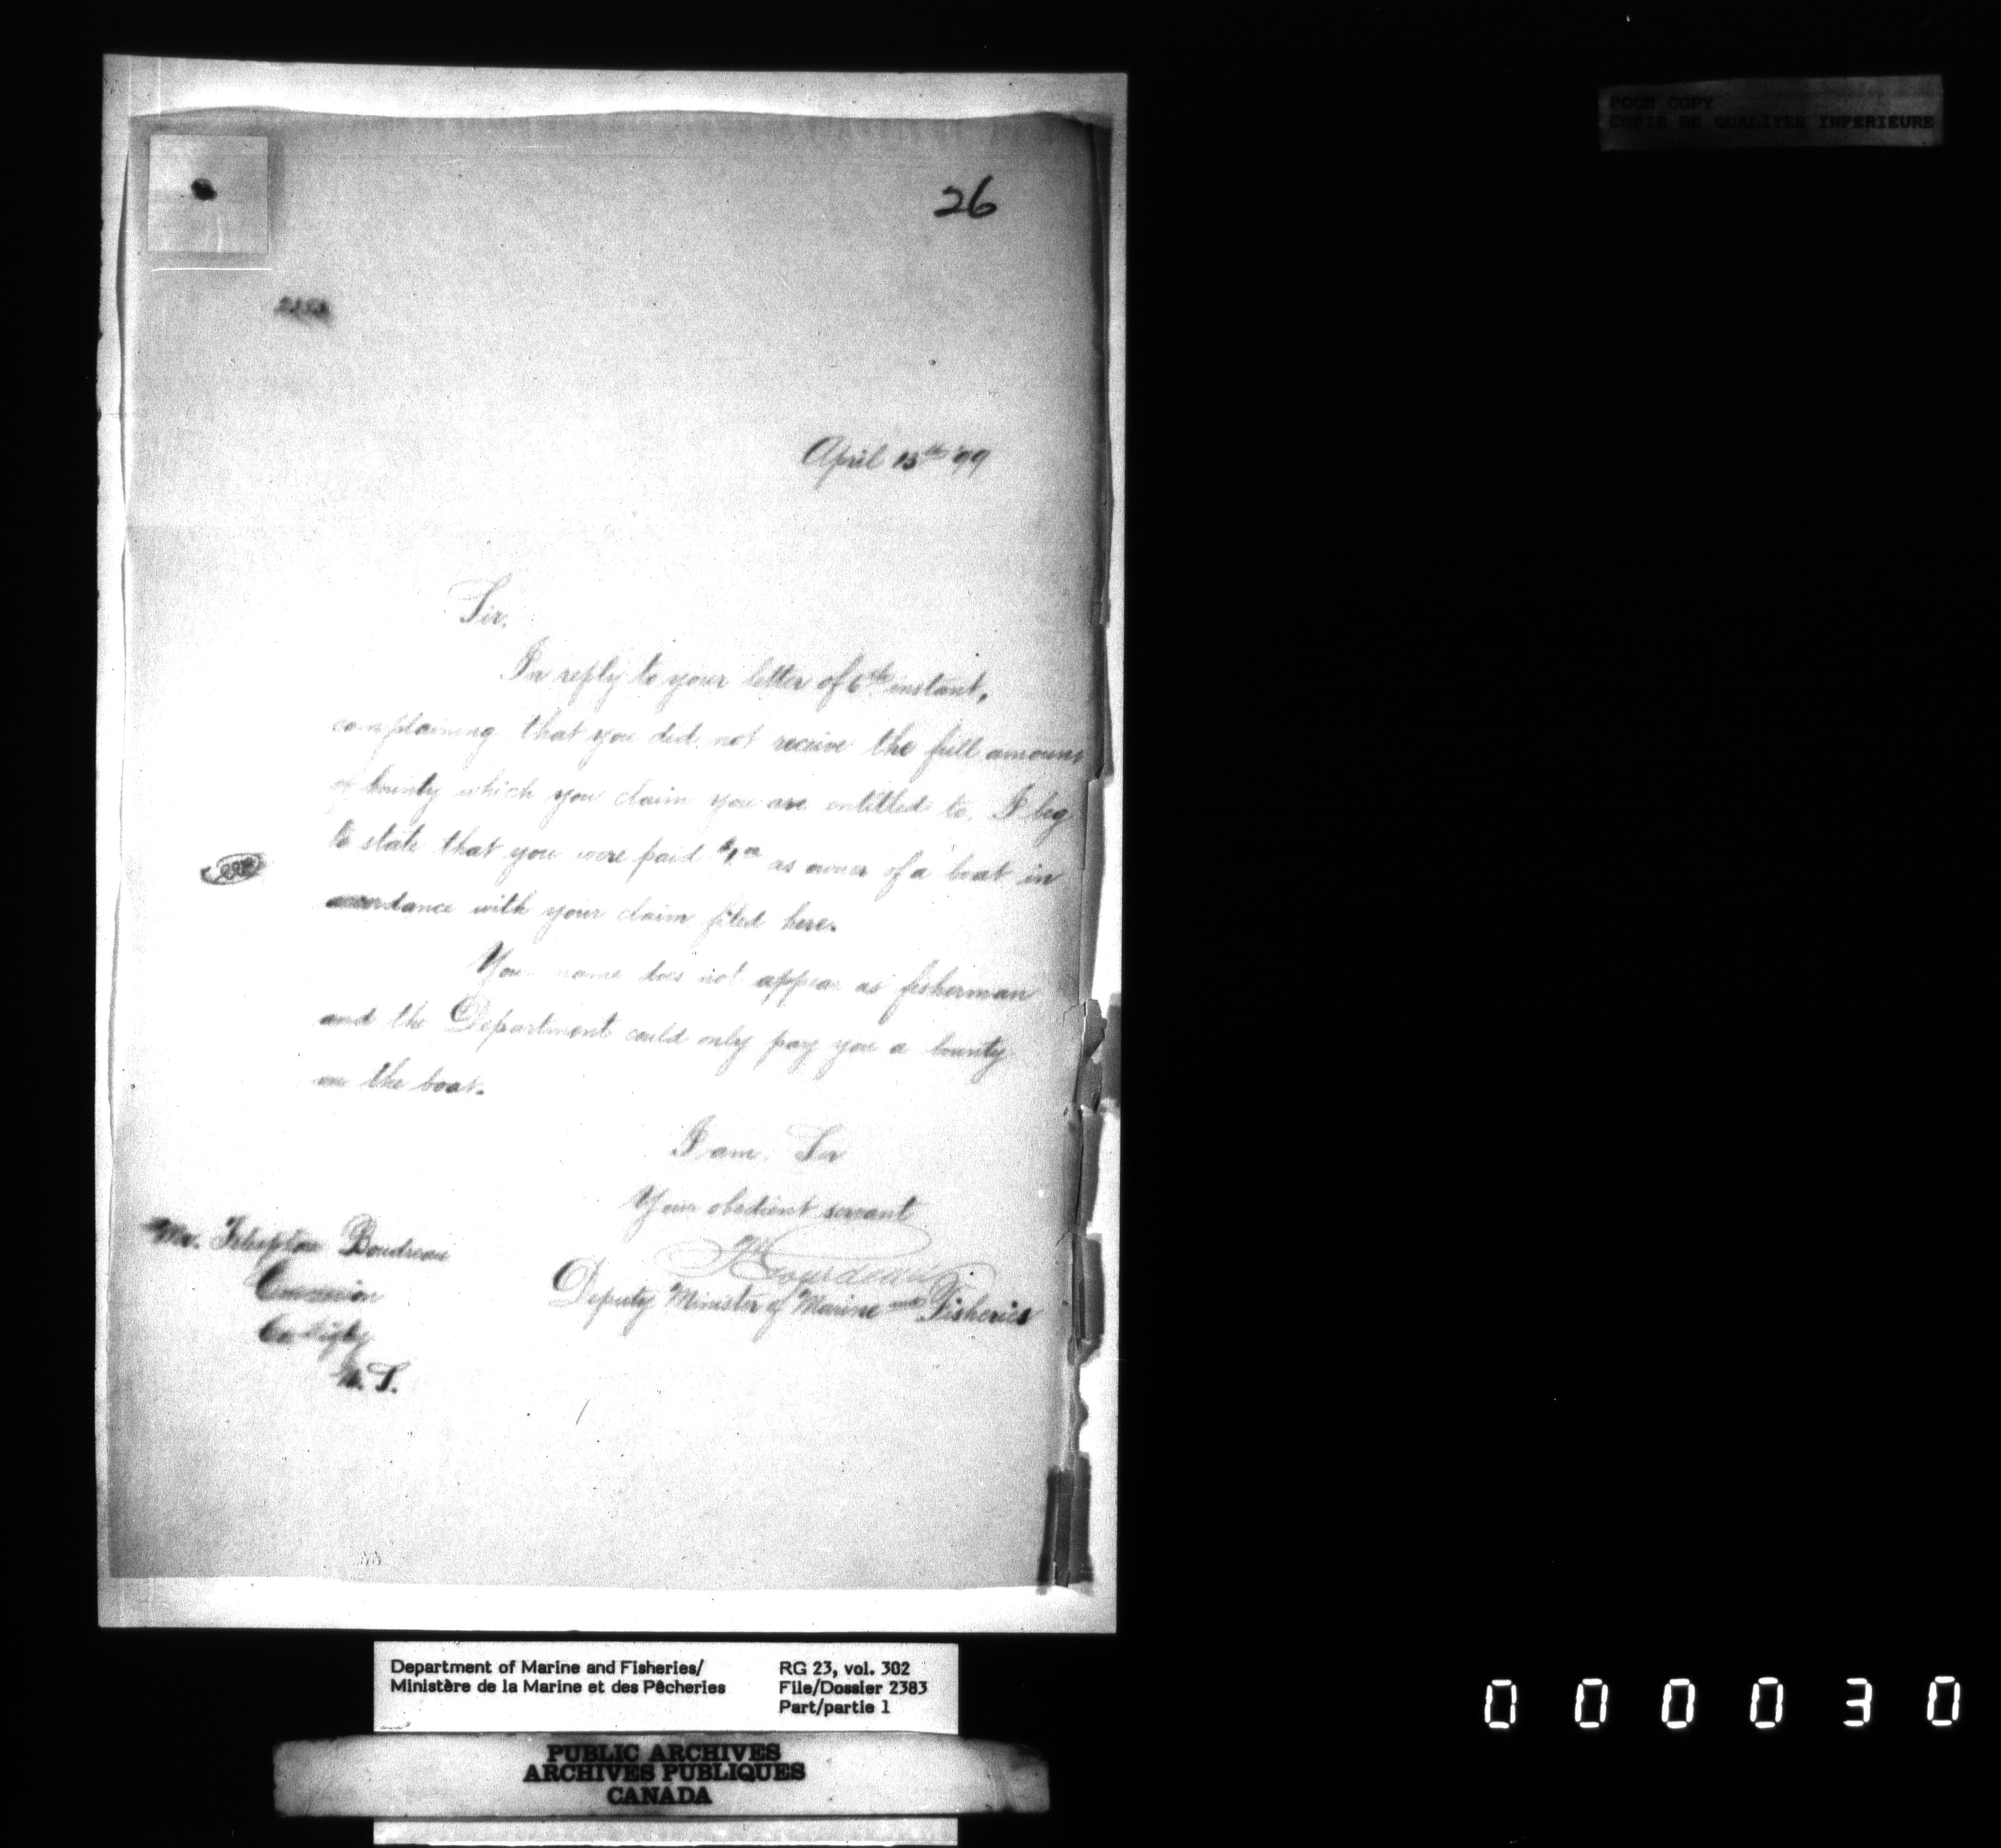 POOR COPY
COPIE DE QUALITEE INFERIEURE
26
April 15th '99
Sir,
In reply to your letter of 6th instant,
complaining that you did not receive the full amount
of bounty which you claim you are entitled to, I beg
to state that you were paid $1.00 as owner of a boat in
accordance with your claim filed here.
Your name does not appear as fisherman
and the Department could only pay you a bounty
on the boat.
I am, Sir
Your obedient servant
F Gourdeau
Deputy Minister of Marine and Fisheries
Mr. Boudreau
N. S.
Department of Marine and Fisheries/
Ministère de la Marine et des Pêcheries
RG 23, vol. 302
File/Dossier 2383
Part/partie 1
PUBLIC ARCHIVES
ARCHIVES PUBLIQUES
CANADA
000030